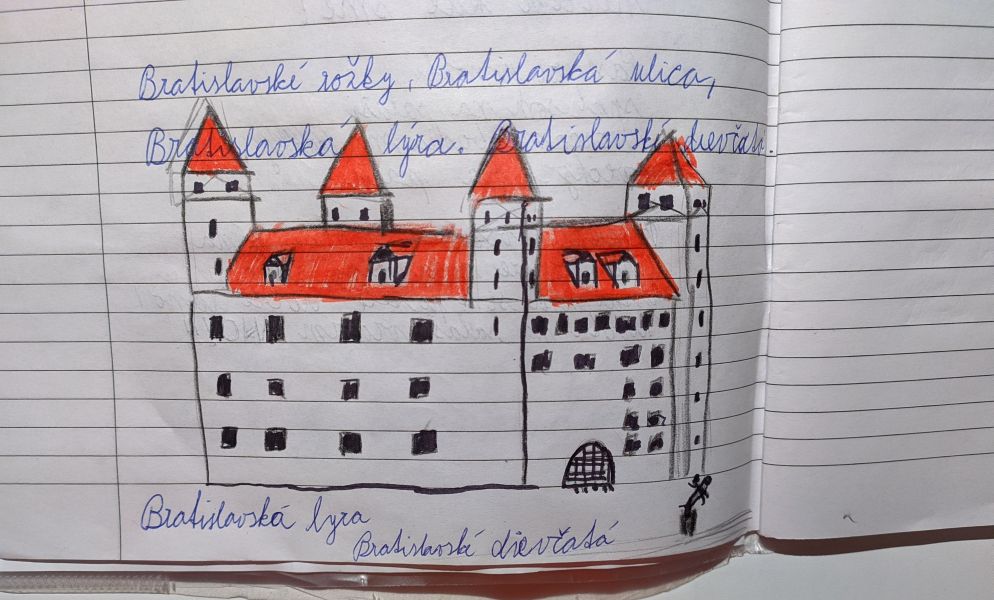 Bratislavské rožky, Bratislavská ulica,
Bratislavská lýra. Bratislavské dievčatá.
Bratislavská lyra
Bratislavské dievčatá